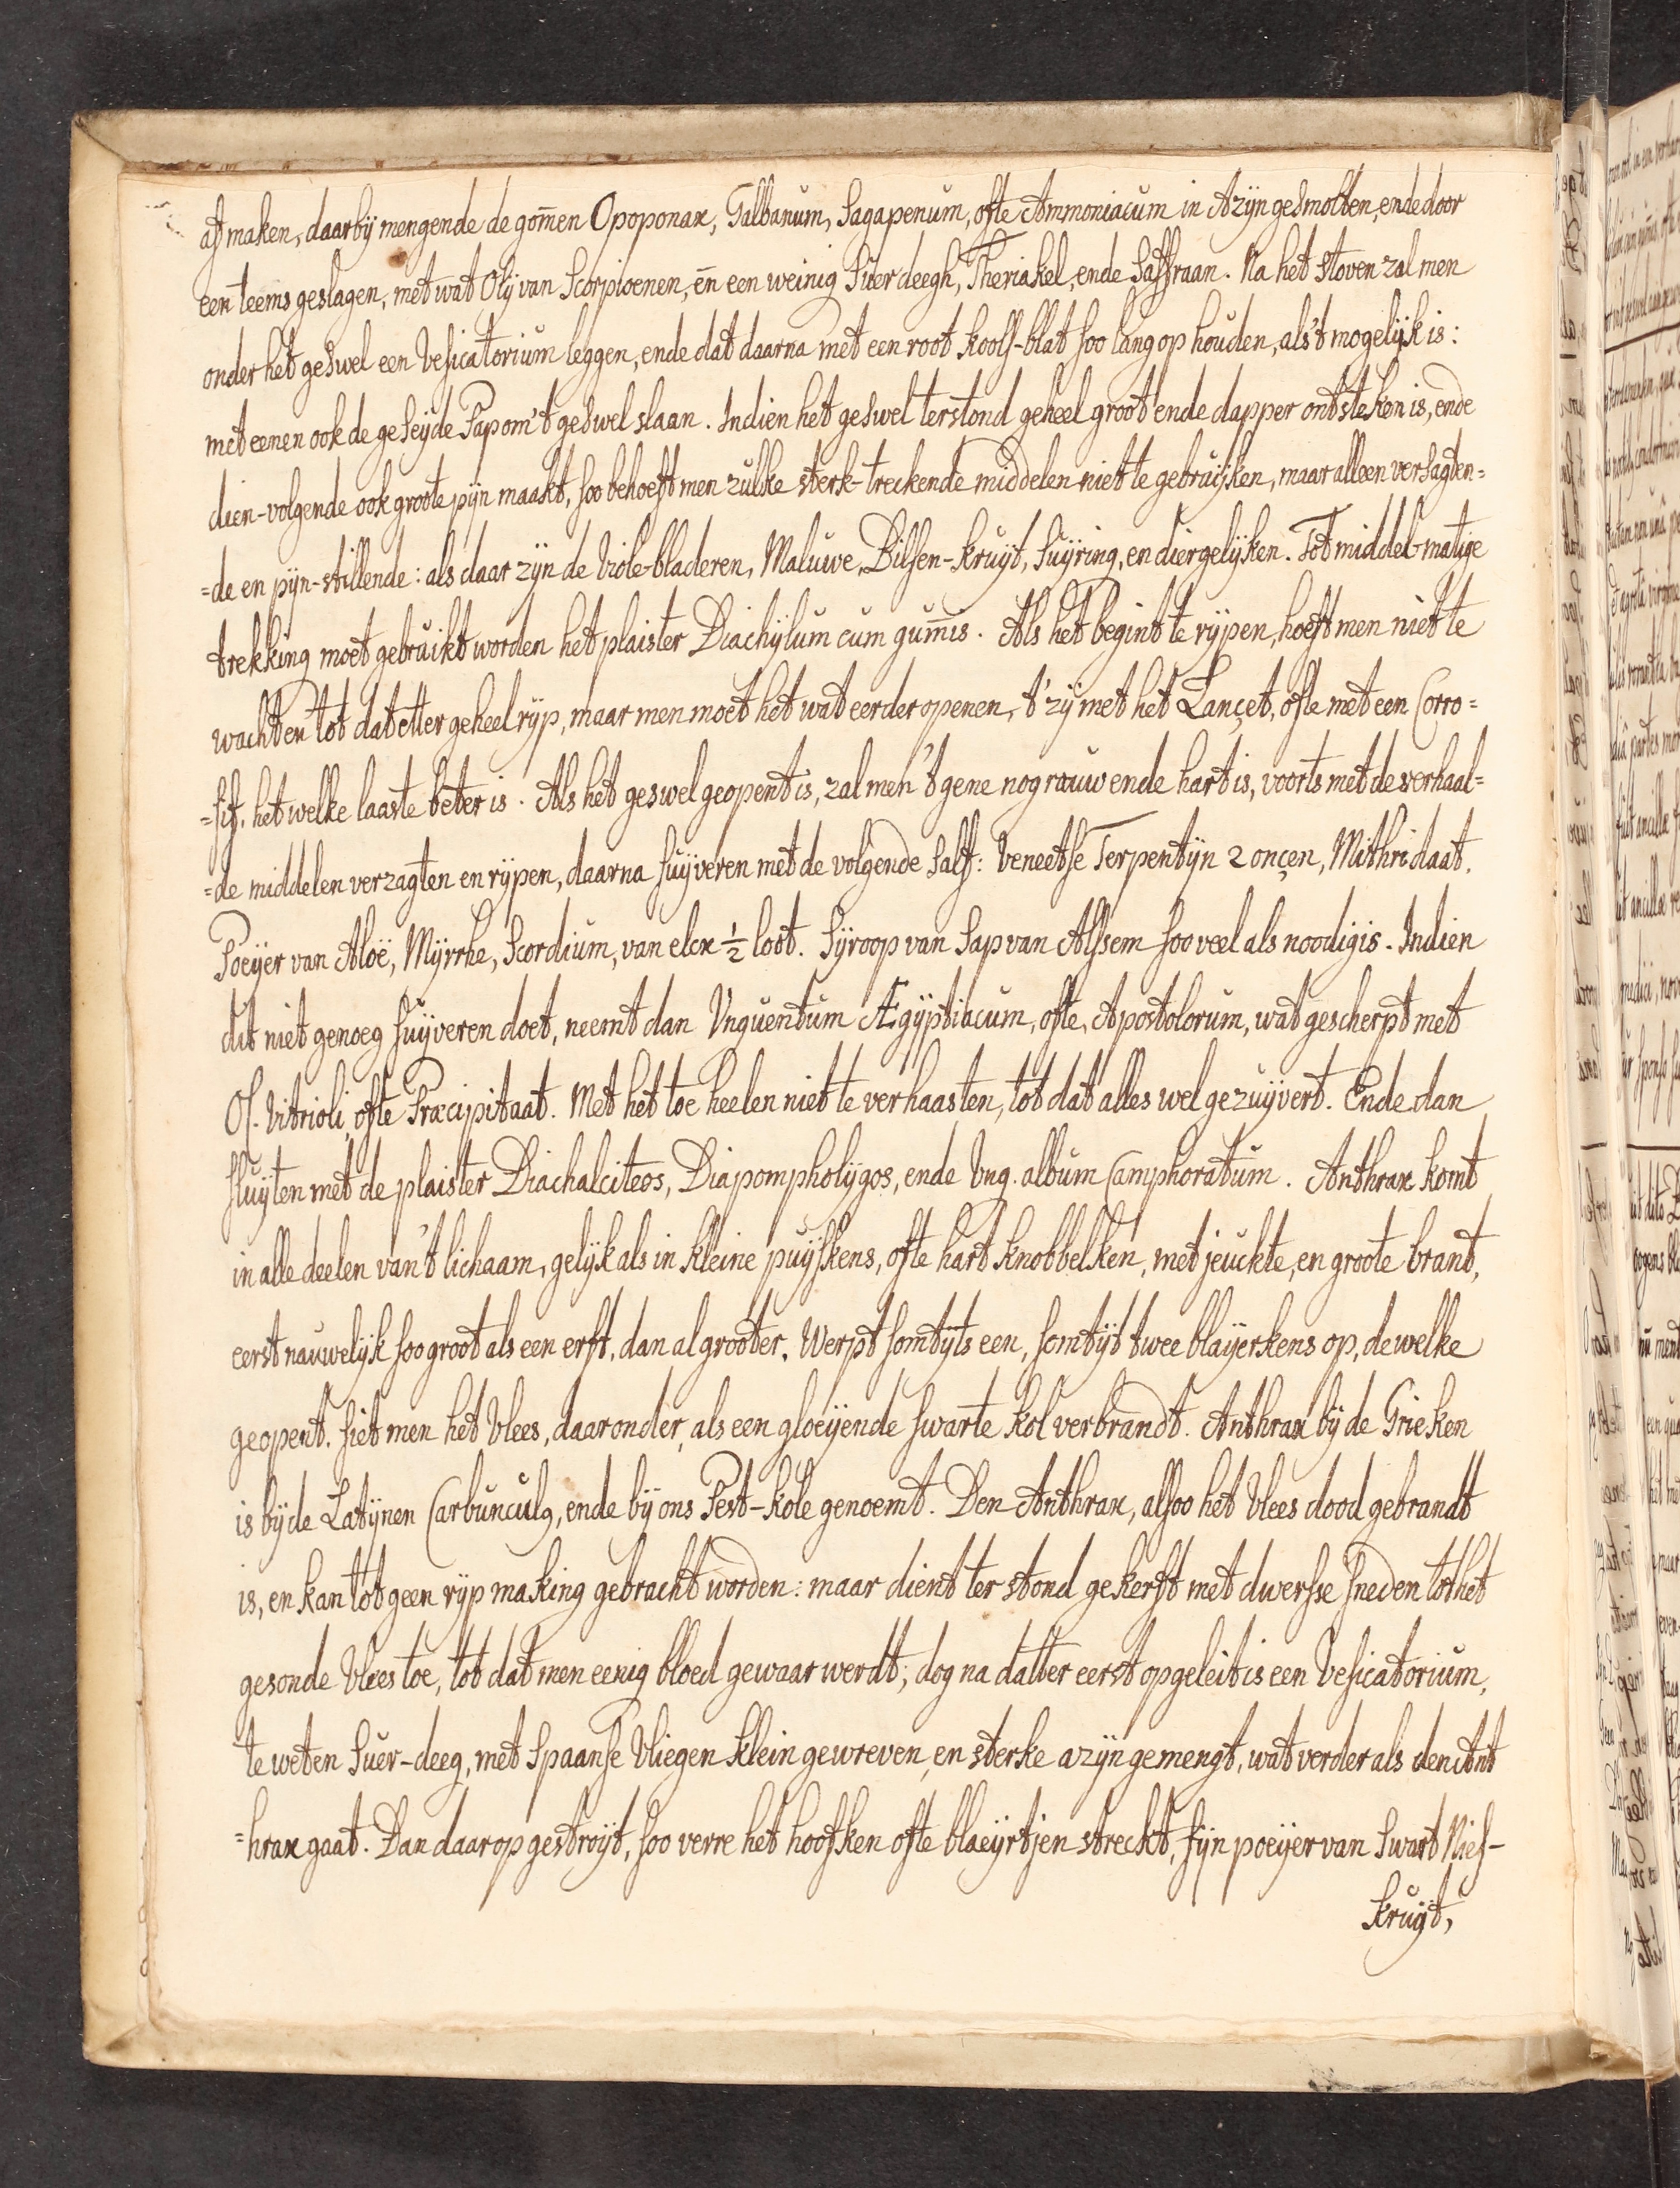 af maken, daarbij mengende de gom̅en Opoponax, Galbanum, Sagapenum, ofte Ammoniacum in Azijn gesmolten, ende door
een teems geslagen, met wat Olij van Scorpioenen, en̅ een weinig Suer deegh, Theriakel, ende Saffraan. Na het stoven zal men
onder het geswel een Vesicatorium leggen, ende dat daarna met een root kools-blat soo lang op houden, als't mogelijk is:
met eenen ook de geseijde Pap om't geswel slaan. Indien het geswel terstond geheel groot ende dapper ontsteken is, ende
dien-volgende ook groote pijn maakt, soo behoeft men zulke sterk-treckende middelen niet te gebruijken, maar alleen versagten=
=de en pijn-stillende: als daar zijn de Viole-bladeren, Maluwe, Bilsen-kruijt, Suijring, en diergelijken. Tot middel-matige
trekking moet gebruikt worden het plaister Diachijlum cum gum̅is. Als het begint te rijpen, hoeft men niet te
wachten tot dat etter geheel rijp, maar men moet het wat eerder openen, t'zij met het Lançet, ofte met een Corro=
=sif, het welke laaste beter is. Als het geswel geopent is, zal men 't gene nog rauw ende hart is, voorts met de verhaal=
=de middelen verzagten en rijpen, daarna suijveren met de volgende Salf: Veneetse Terpentijn 2 onçen, Mithridaat,
Poeijer van Aloë, Mijrrhe, Scordium, van elcx ½ loot. Sijroop van Sap van Alssem soo veel als noodig is. Indien
dit niet genoeg suijveren doet, neemt dan Unguentum Ægijptiacum, ofte, Apostolorum, wat gescherpt met
Ol. Vitrioli, ofte Præcipitaat. Met het toe heelen niet te verhaasten, tot dat alles wel gezuijvert. Ende dan
sluijten met de plaister Diachalciteos, Diapompholijgos, ende Ung. album Camphoratum. Anthrax komt
in alle deelen van't lichaam, gelijk als in kleine puijskens, ofte hart knobbelken, met jeuckte, en groote brant,
eerst nauwelijk soo groot als een erft, dan al grooter. Werpt somtijts een, somtijt twee blaijerkens op, dewelke
geopent. siet men het Vlees, daar onder, als een gloeijende swarte kol verbrandt. Anthrax bij de Grieken
is bij de Latijnen Carbunculꝯ, ende bij ons Pest-kole genoemt. Den Anthrax, alsoo het Vlees dood gebrandt
is, en kan tot geen rijp making gebracht worden: maar dient ter stond gekerft met dwersse sneden tot het
gesonde Vlees toe, tot dat men eenig bloed gewaar werdt; dog na datter eerst opgeleit is een Vesicatorium,
te weten Suer-deeg, met Spaanse Vliegen klein gewreven, en sterke azijn gemengt, wat verder als den Ant
=hrax gaat. Dan daar op gestroijt, soo verre het hoofken ofte blaeijrtjen streckt, sijn poeijer van Swart Nies-
kruijt,